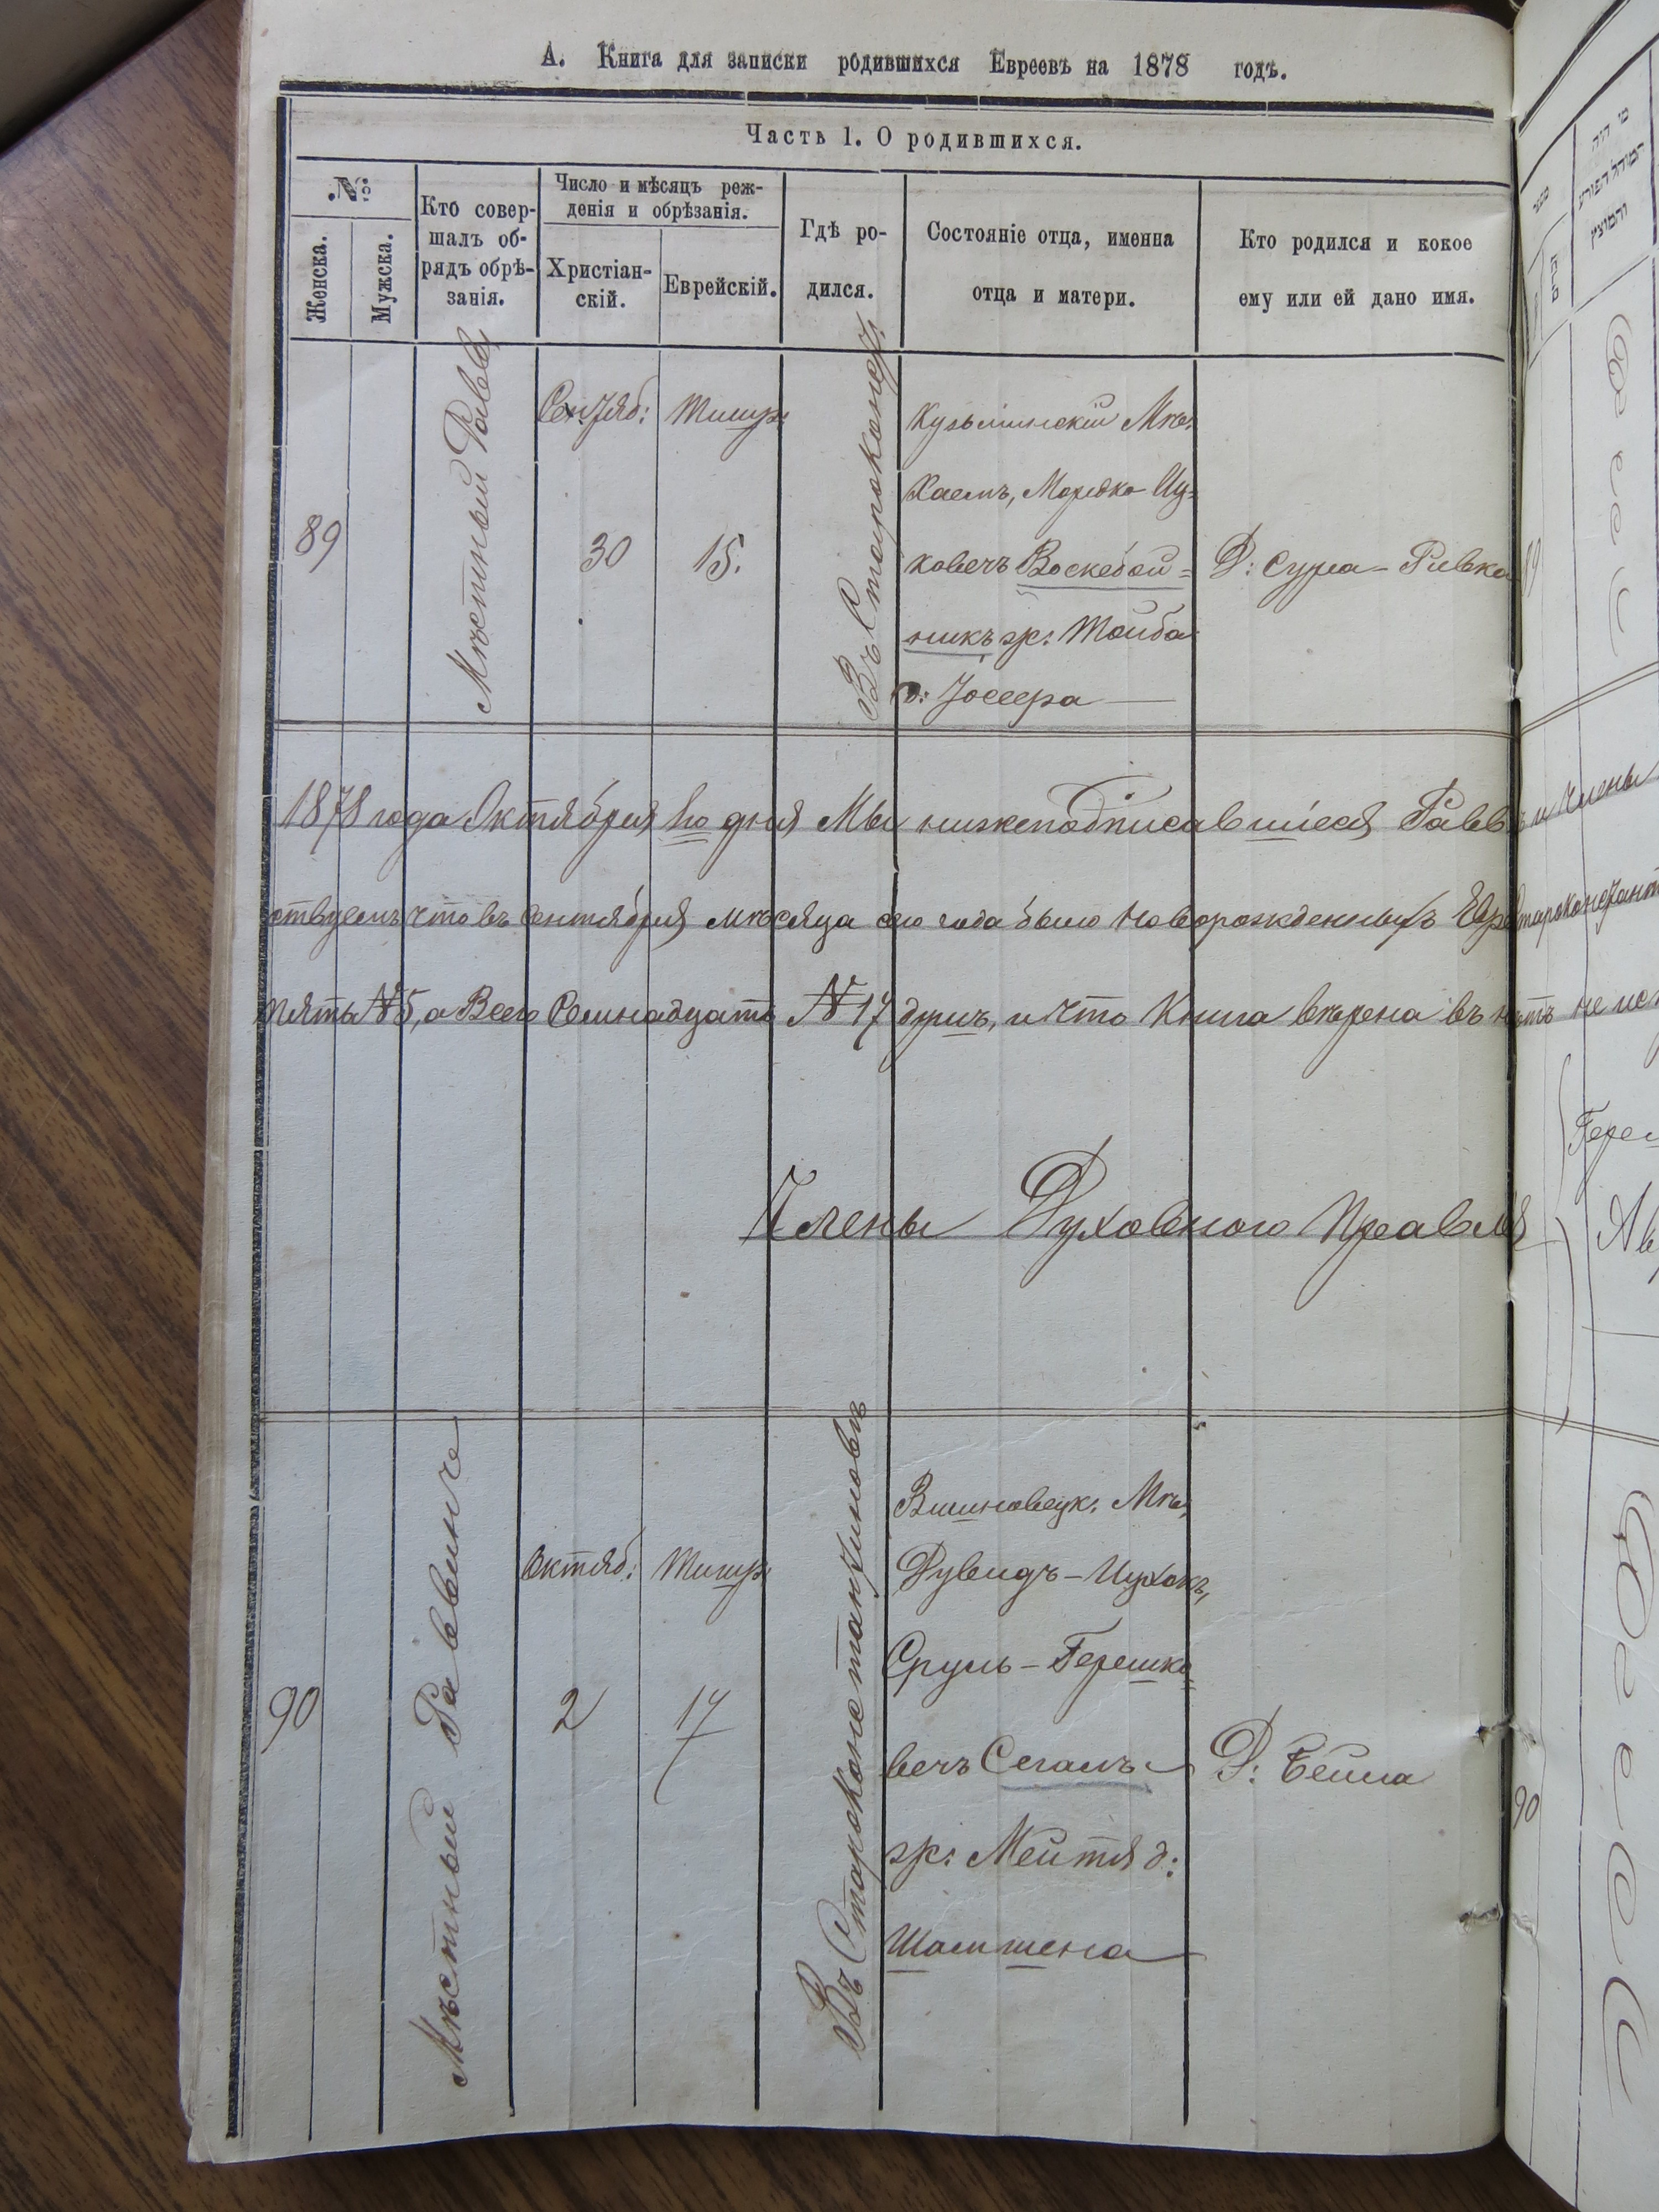 А. Книга для записки родившихся Евреевъ на 1878 годъ.
Часть 1. О родившихся.
№
Женска.
Мужска.
Кто совер-
шалъ об-
рядъ обрѣ-
занія.
Число и мѣсяцъ реж-
денія и обрѣзанія.
Христіан-
скій.
Еврейскій.
Гдѣ ро-
дился.
Состояніе отца, именна
отца и матери.
Кто родился и кокое
ему или ей дано имя.
89
Мѣстный Равв:
Сентяб:
30
Тишр:
15.
Въ Староконст:
Кузьминскій Мѣ:
Хаемъ, Мордко Иц=
ковечъ Воскебой=
никъ жр: Тойба
д: Јосера
Д: Сура-Ривка
89
1878 года Октября 1го дня Мы нижеподписавшіеся Равв и Члены
ствуемъ что въ Сентября мѣсяца сего года было Новорожденныхъ Евр Староконстант
пять №5, а Всего Семнадцать №17 душъ, и что Книга вѣрена въ не
Члены Духовного Правле
90
Мѣстный Раввинъ
Октяб:
2
Тишр:
17
Въ Староконстантиновѣ
Вишновецк: Мѣ:
Дувидъ-Ицхокъ,
Сруль-Гершко
вечъ Сегалъ
жр: Мейтя д:
Шамшена
Д: Бейла
90